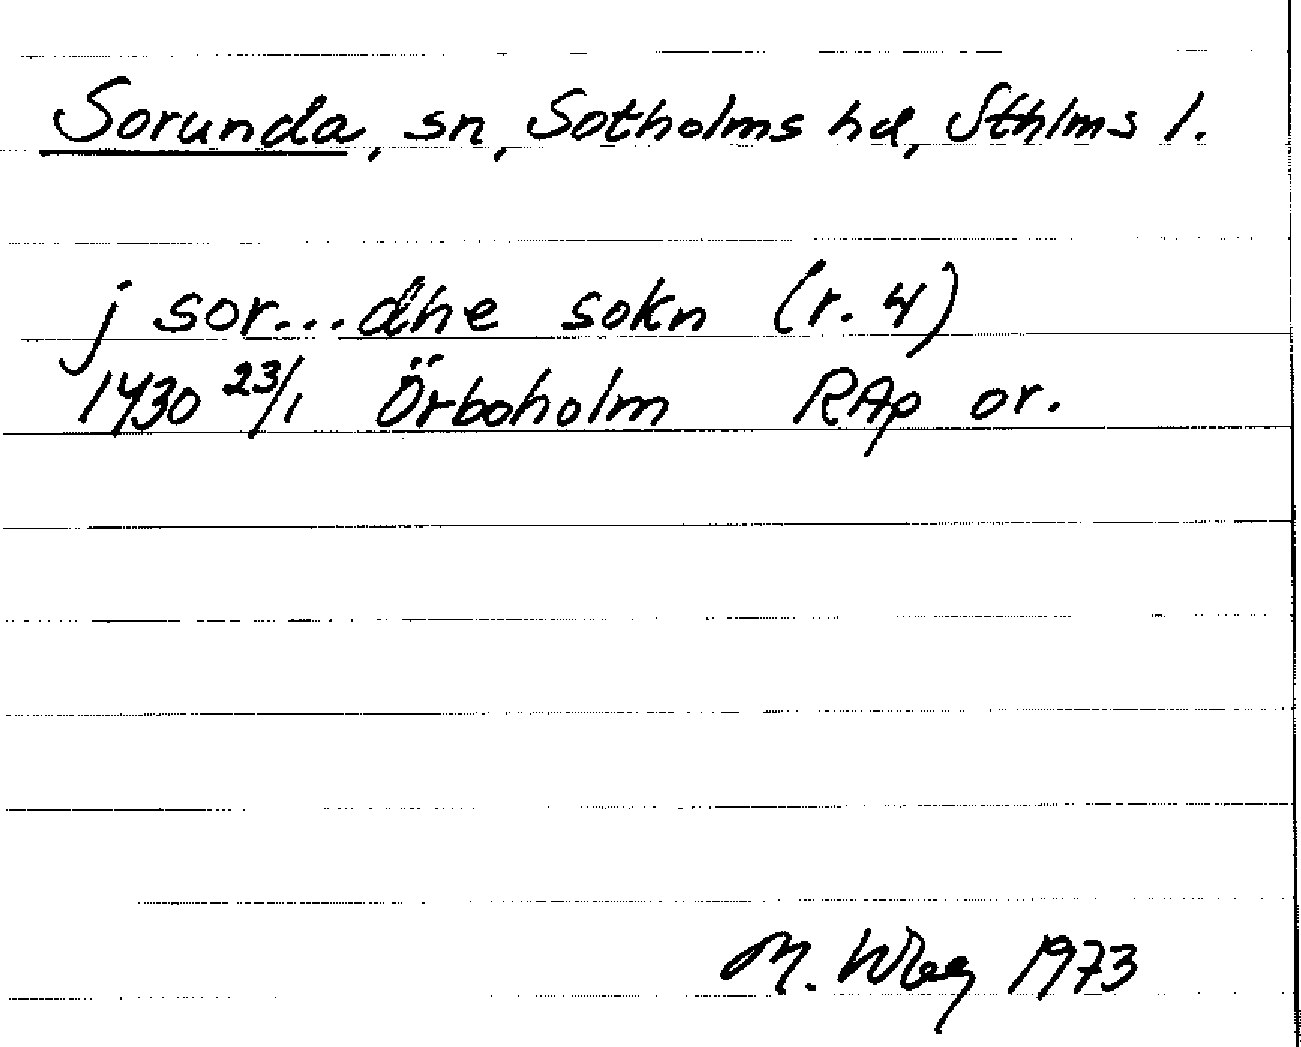 Sorunda, sn, Sotholms hd, Sthlms l.
j sor...dhe sokn (r. 4)
1430 23/1 Örboholm RAp or.
M. Wbg 1973